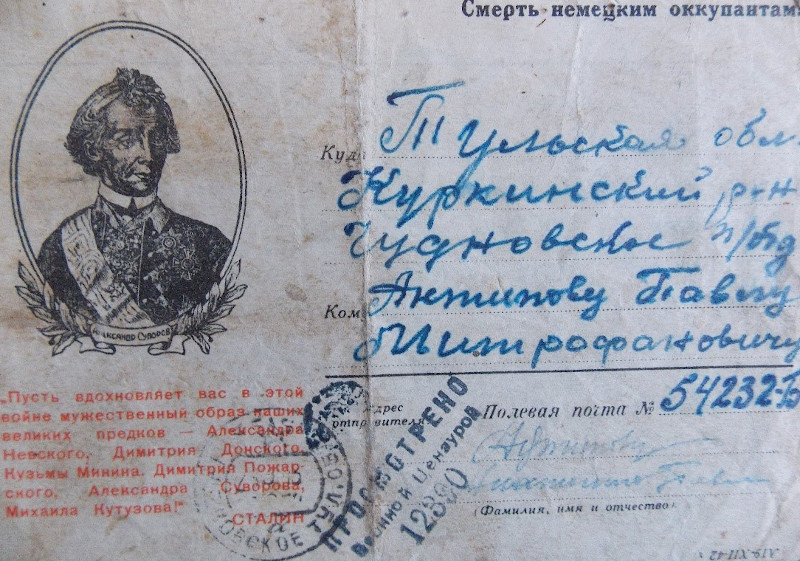 Смерть немецким оккупантам
Куда Тульская обл.
Куркинский р-н
Чудновское п/отд
Кому Антипову Павлу
Митрофановичу
АЛЕКСАНДР СУВОРОВ
„Пусть вдохновляет вас в этой
войне мужественный образ наших
великих предков — Александра
Невского, Димитрия Донского,
Кузьмы Минина, Димитрия Пожар
ского, Александра Суворова,
Михаила Кутузова!"
СТАЛИН
Адрес
отправителя
Полевая почта № 54232-Б
(Фамилия, имя и отчество)
ПРОСМОТРЕНО
Военной Цензурой
12890
ТУЛ. ОБ